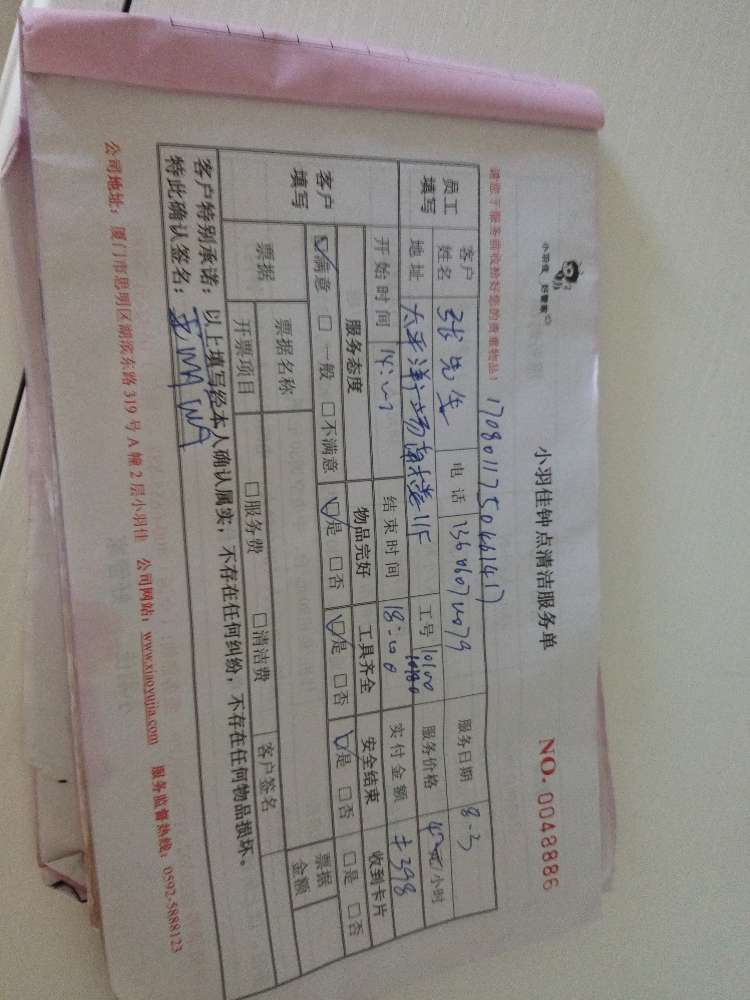 小羽佳 好管家
小羽佳钟点清洁服务单 NO. 0048886
请您于服务前收拾好您的贵重物品！ 17080117504661417
员工填写 客户姓名 张先生 电话 服务日期 8-3
地址 太平洋广场南木巷11F 工号 10100 服务价格 元/小时
10780
客户填写 开始时间 14: 结束时间 18:00 实付金额 398
服务态度 物品完好 工具齐全 安全结束 收到卡片
☑满意 □一般 □不满意 ☑是 □否 ☑是 □否 ☑是 □否 □是 □否
票据 票据名称 客户签名 票据金额
开票项目 □服务费 □清洁费
客户特别承诺：以上填写经本人确认属实，不存在任何纠纷，不存在任何物品损坏。
特此确认签名：
公司地址：厦门市思明区湖滨东路319号A幢2层小羽佳 公司网站：www.xiaoyujia.com 服务监督热线：0592-5888123